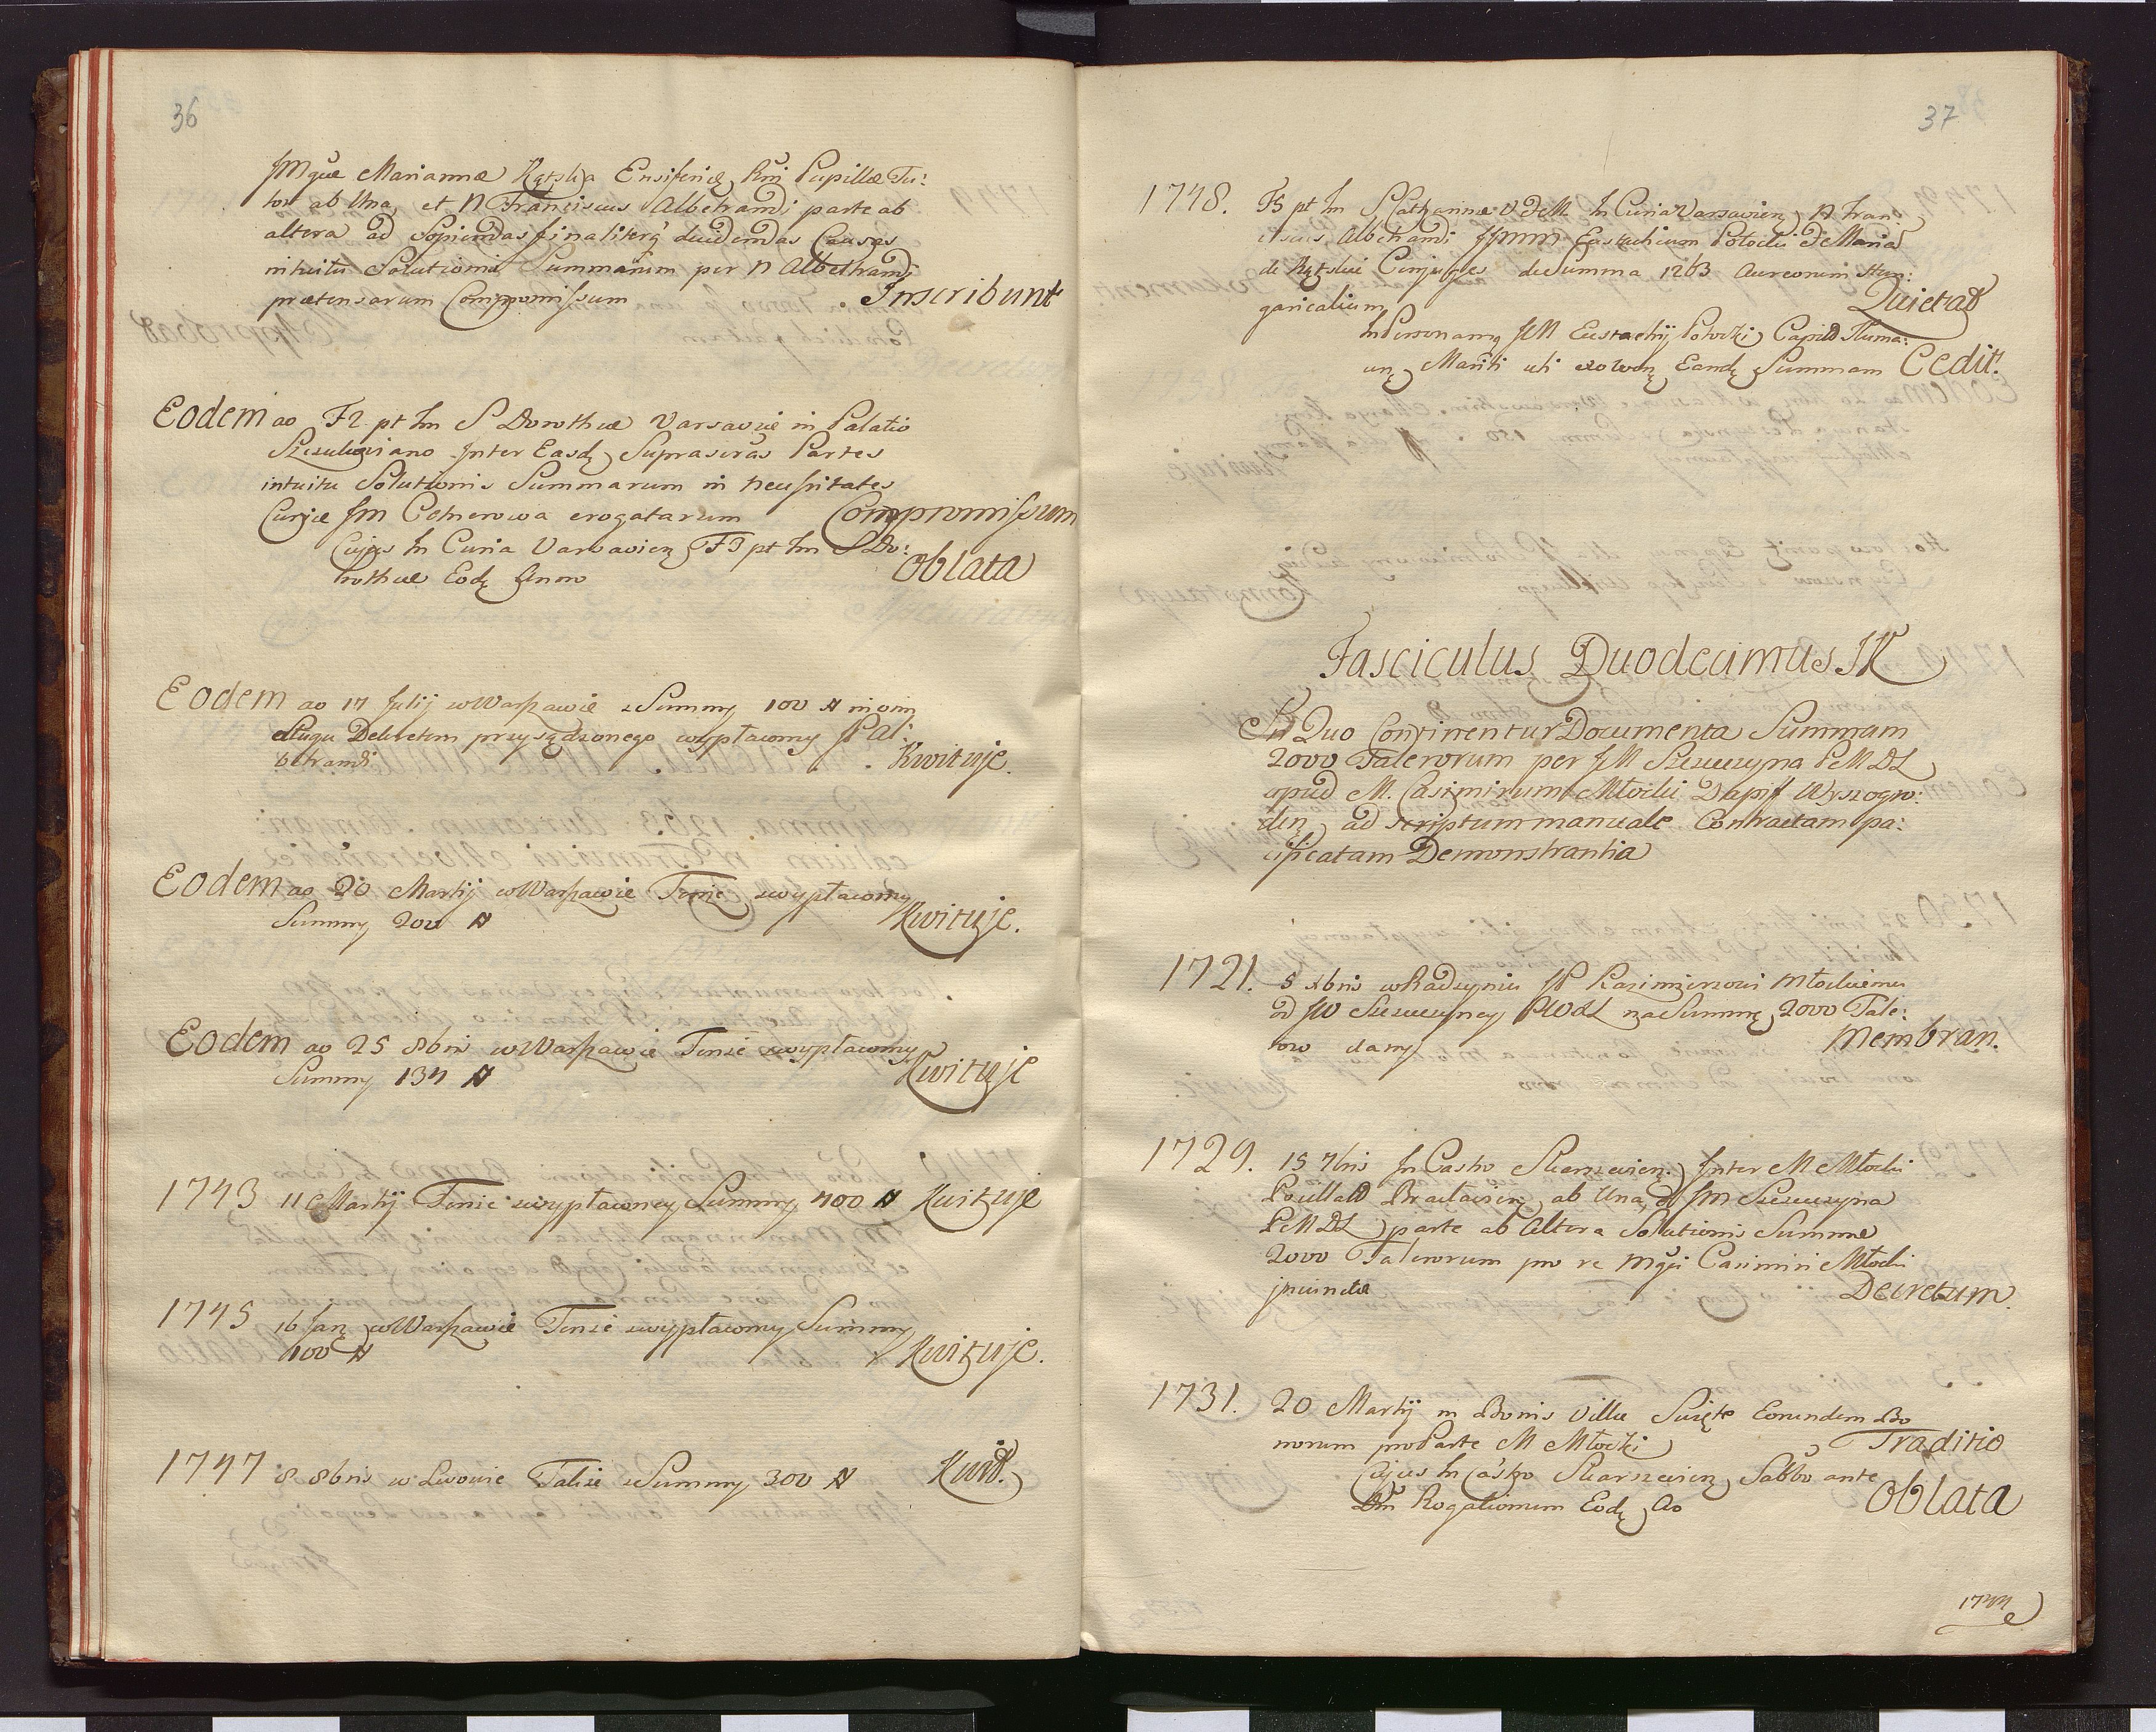 36
JM que Mariannæ Kątska Ensiferidę Rni Pupillæ Tu:
tor ab Una, et N Franciscus Albetrandi parte ab
altera ad Sopiendas finaliterq̃ decidendas Causas
intuitu Solutionis Summarum per N Albetrandi
prætensarum Compromissum Inscribunt
Eodem ao F2 pt fm S Dorotheæ Varsaviæ in Palatio
Szczukoviano Inter Easdę Suprascras Partes
intuitu Solutionis Summarum in necessitates
Curiæ JM Cetnerowa erogatarum Compromissum
Cujus In Curia Varsavien F3 pt fm S Do:
rotheæ Eodę Anno Oblata
Eodem ao 17 Julij w Warszawie z Summy 100 # in vim
długu Dekretem przysądzonego wypłaconey JP Al:
betrandi Kwituje.
Eodem ao 20 Martij w Warszawie Tenże z wypłaconey
Summy 200 # Kwituje.
Eodem ao 25 8bris w Warszawie Tenże z wypłaconey
Summy 134 # Kwituje
1743 11 Martij Tenże z wypłaconey Summy 400 # Kwituje
1745 16 Janę w Warszawie Tenże z wypłaconey Summy
100 # Kwituje.
1747 8 8bris w Lwowie Także z Summy 300 # Kwit.
37
1748. F5 pt fm S Catharinæ V et M In Curia Varsavien N Fran
ciscus Albetrandi JJMM Eustachium Potocki et Maria
de Kątskie Conjuges de Summa 1263 Aureorum Hun:
garicalium Quietat
In Personamq JM Eustachij Potocki Capit Tluma:
cen Mariti uti exolven Eandę Summam Cedit.
Fasciculus Duodecimus JK
In Quo Continentur Documenta Summam
2000 Talerorum per JM Szczuczyna PMDL
apud M. Casimirum Młocki Dapif Wyszogro:
den ad scriptum manuale Contractam pa:
cificatam Demonstrantia
1721. 5 xbris w Radzyniu JP Kazimierzowi Młockiemu
od JW Szczuczyney PWXL na Summę 2000 Tale:
row dany Membran.
1729. 15 7bris In Castro Skarszevien. Inter M Młocki
Pocillat Braclavien ab Una, et JM Szczuczyna
PMDL parte ab Altera Solutionis Summæ
2000 Talerorum pro re Mgci Casimiri Młocki
Decretum.
1731. 20 Martij in Bonis Villæ Święte Eorundem Bo
norum pro Parte M Młocki Traditio
Cujus In Castro Skarszevien Sabbo ante
Dm Rogationum Eodę Ao Oblata